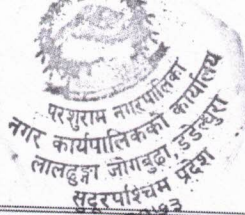 परशुराम नगरपालिका
नगर कार्यपालिकको कार्यालय
लालढुङ्गा जोगबुढा, डडेल्धुरा
सुदूरपश्चिम प्रदेश